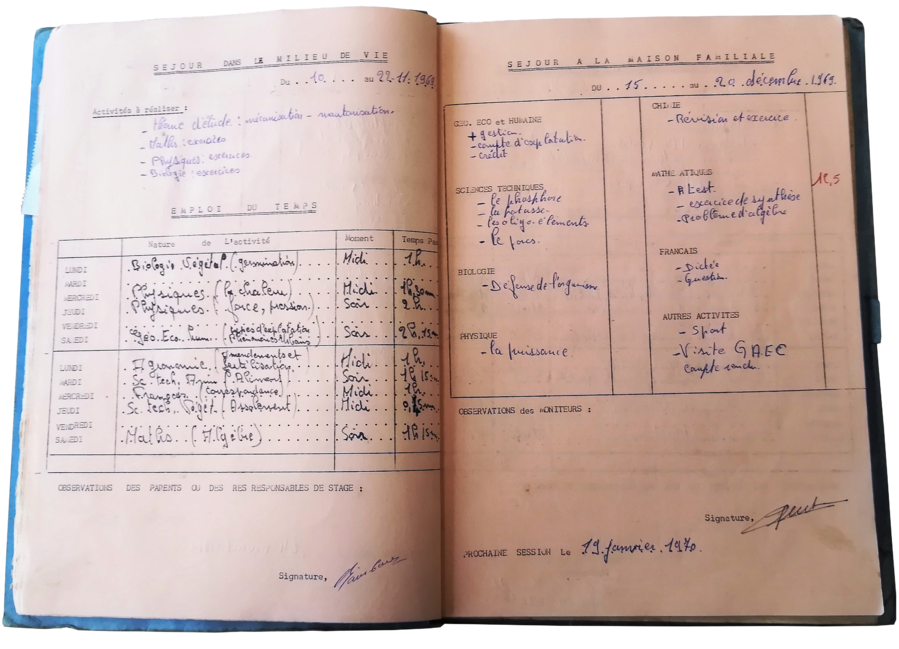 SEJOUR DANS LE MILIEU DE VIE
Du ..10..... au 22-11-1969
Activités à réaliser :
- Thème d'étude : mécanisation - motorisation.
- Maths : exercices
- Physiques : exercices
- Biologie : exercices
EMPLOI DU TEMPS
Nature de L'activité Moment Temps Pa
LUNDI Biologie Végétal (germination) Midi 1h
MARDI
MERCREDI Physiques (la chaleur) Midi 1h
JEUDI Physiques (force, pression) Soir 2h
VENDREDI
SAMEDI Géo. Eco. hum. (types d'exploitation Soir 2h 15m
LUNDI Agronomie (Amendements et fertilisation Midi 1h
MARDI Sc. tech. Anim (Aliment) Soir 1h 15m
MERCREDI Français (correspondance) Midi 1h
JEUDI Sc. tech. Végét (Assolement) Midi
VENDREDI
SAMEDI Maths (Algèbre) Soir 1h 15m
OBSERVATIONS DES PARENTS OU DES RES RESPONSABLES DE STAGE :
Signature,
SEJOUR A LA MAISON FAMILIALE
DU ..15...... au ..20 décembre.1969.
GEO. ECO et HUMAINE
+ gestion.
- compte d'exploitation.
- crédit
SCIENCES TECHNIQUES
- le phosphore
- la potasse.
- les oligo-éléments
- le porc.
BIOLOGIE
- Défense de l'organisme
PHYSIQUE
- la puissance.
CHIMIE
- Révision et exercice.
MATHE ATIQUES
- R test. 12,5
- exercice de synthèse
- Problème d'algèbre
FRANCAIS
- Dictée
- Question.
AUTRES ACTIVITES
- Sport
- Visite GAEC
compte rendu.
OBSERVATIONS des MONITEURS :
Signature,
PROCHAINE SESSION Le 19 janvier 1970.